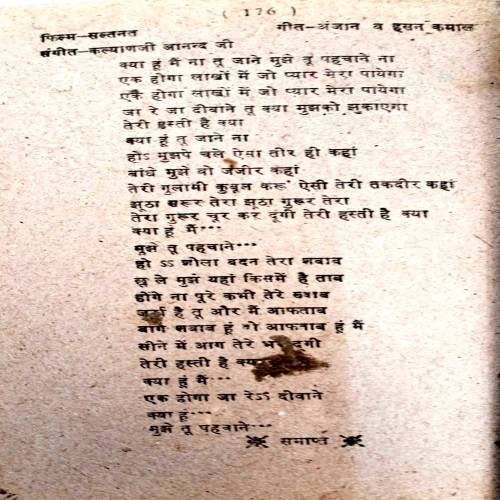 ( 176 )
फिल्म-सल्तनत गीत-अंजान व हसन कमाल
संगीत-कल्याणजी आनन्द जी
क्या हूं मैं ना तू जाने मुझे तू पहचाने ना
एक होगा लाखों में जो प्यार मेरा पायेगा
एक होगा लाखों में जो प्यार मेरा पायेगा
जा रे जा दीवाने तू क्या मुझको झुकाएगा
तेरी हस्ती है क्या
क्या हूं तू जाने ना
होऽ मुझपे चले ऐसा तीर ही कहां
बांधे मुझे वो जंजीर कहां
तेरी गुलामी कुबूल करूं ऐसी तेरी तकदीर कहां
झूठा सरूर तेरा झूठा गुरूर तेरा
तेरा गुरूर चूर कर दूंगी तेरी हस्ती है क्या
क्या हूं मैं···
मुझे तू पहचाने···
हो ऽऽ शोला बदन तेरा शबाब
छू ले मुझे यहां किसमें है ताब
होंगे ना पूरे कभी तेरे ख्वाब
है तू और मैं आफताब
शबाब हूं आफताब हूं मैं
सीने में आग तेरे दूंगी
तेरी हस्ती है
क्या हूं मैं···
एक होगा जा रेऽऽ दीवाने
क्या हूं···
मुझे तू पहचाने···
समाप्त